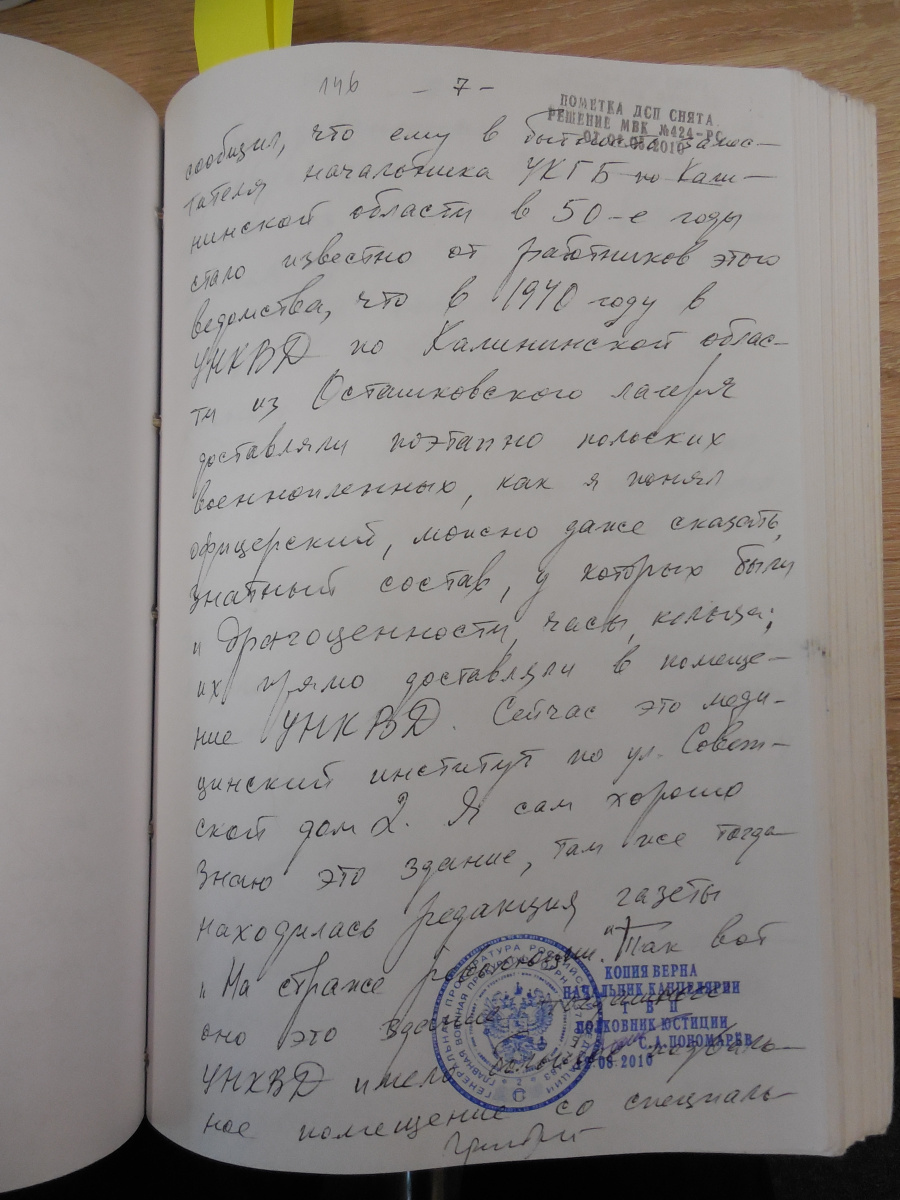 146 - 7 -
ПОМЕТКА ДСП СНЯТА
РЕШЕНИЕ МВК №424-РС
сообщил, что ему в бытность замес-
тителя начальника УКГБ по Кали-
нинской области в 50-е годы
стало известно от работников этого
ведомства, что в 1940 году в
УНКВД по Калининской облас-
ти из Осташковского лагеря
доставляли поэтапно польских
военнопленных, как я понял
офицерский, можно даже сказать,
знатный состав, у которых были
и драгоценности, часы, кольца;
их прямо доставляли в помеще-
ние УНКВД. Сейчас это меди-
цинский институт по ул. Совет-
ской дом 2. Я сам хорошо
знаю это здание, там же тогда
находилась редакция газеты
"На страже революции". Так вот
оно это здание
УНКВД имело подваль-
ное помещение со специаль-
КОПИЯ ВЕРНА
НАЧАЛЬНИК КАНЦЕЛЯРИИ
ГВП
ПОЛКОВНИК ЮСТИЦИИ
С.А.ПОНОМАРЕВ
ГЕНЕРАЛЬНАЯ ПРОКУРАТУРА РОССИЙСКОЙ ФЕДЕРАЦИИ
ГЛАВНАЯ ВОЕННАЯ ПРОКУРАТУРА